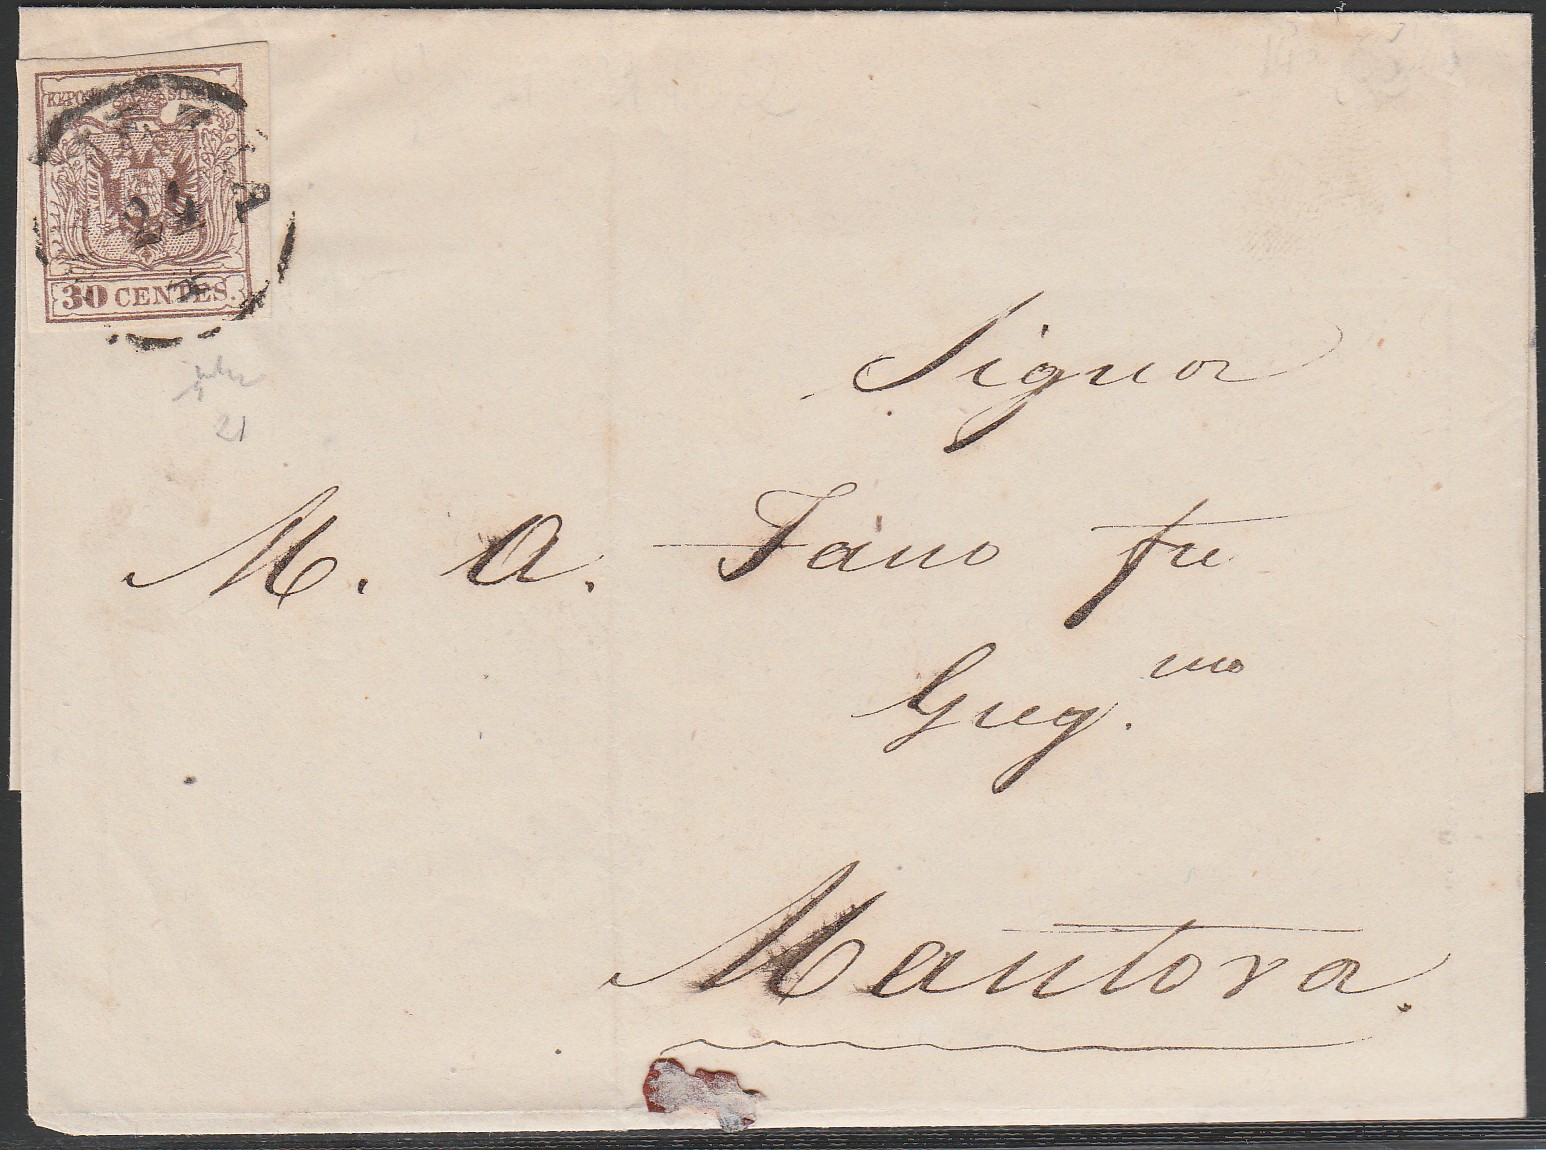 KKPOST STEMPEL
22
30 CENTES.
21
Signor
M. A. Fano fu
Gug.mo
Mantova.